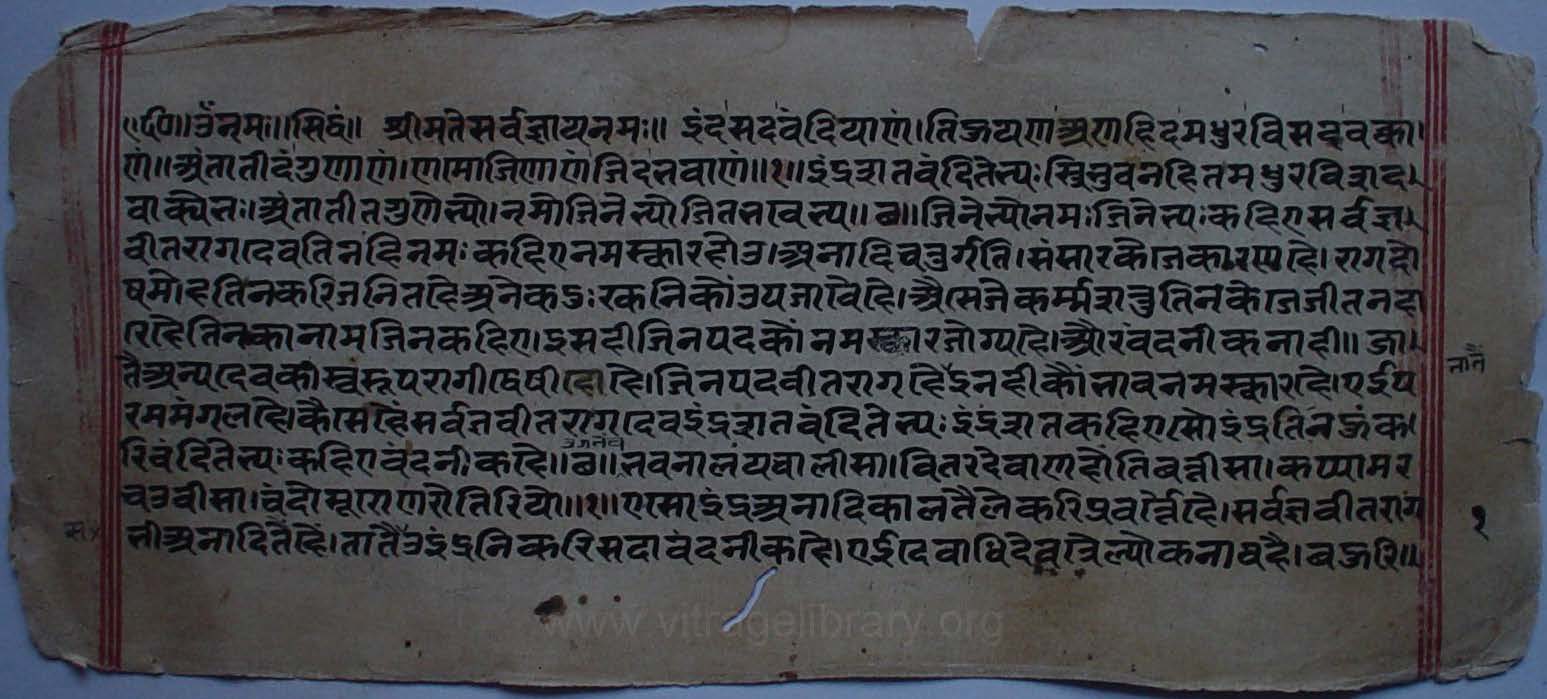 ॥ॐनमः॥सिद्धं॥ श्रीमतेसर्वज्ञायनमः॥ इंदसदवंदियाणं।तिऊयणअणहिदमधुरविसदवक्का।
णं॥अंतातीदंगुणाणं।णमोजिणाणंजिदभवाणं॥१॥इंद्रशतवंदितेभ्यःस्त्रिभुवनहितमधुरविशद।
वाक्येभ्यः॥अंतातीतगुणेभ्यो।नमोजिनेभ्योजितभवेभ्य॥ब॥जिनेभ्योनमःजिनेभ्यःकहिएसर्वज्ञ।
वीतरागदेवतिनहिनमःकहिएनमस्कारहोउ।अनादिचतुर्गति।संसारकेजेकारणहै।रागदो
षमोहतिनकरिजनितहैअनेकदुःरकनिकोंउपजावैहै।असैजेकर्म्मशत्रुतिनकेजेजीतनहा
रेहैतिनकानामजिनकहिए।इसहीजिनपदकौंनमस्कारजोग्यहै।औरवंदनीकनाही॥जा।
तैअन्यदेवकौस्वरूपरागीद्वेषीहोहै।जिनपदवीतरागहैइनहीकौंभावनमस्कारहै।एईप
रममंगलहै।कैसेहैसर्वज्ञवीतरागदेवइंद्रशतवंदितेभ्यःइंद्रशतकहिएसोइंद्रतिनऊंक।
रिवंदितेभ्यःकहिएवंदनीकहै॥ब॥भवनालयचालीसा।वितरदेवाणहोंतिबत्तीसा।कप्पामर
चउवीसा।चंदोसूरोणरोतिरियो॥१॥एसोइंद्रअनादिकालतैलेकरिप्रवर्त्तैहै।सर्वज्ञवीतराग
भीअनादितैहै।तातैउइंद्रनिकरिसदावंदनीकहै।एईदेवाधिदेवत्रैल्योकनाथहै।बऊरि॥
१
www.vitragelibrary.org